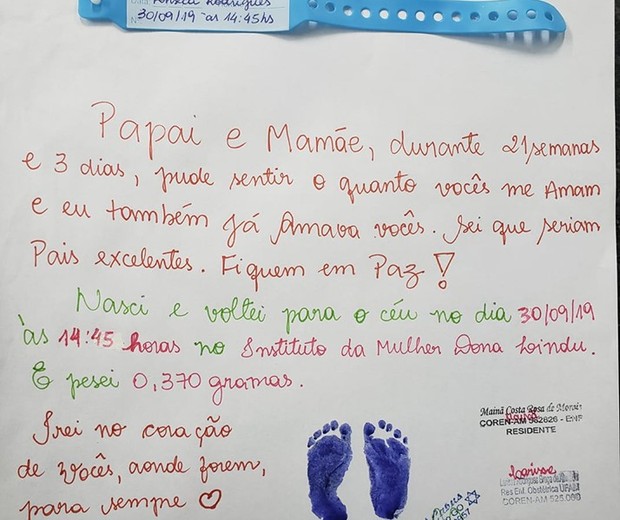 Rodrigues
30/09/19 às 14:45hs
Papai e Mamãe, durante 21 semanas
e 3 dias, pude sentir o quanto vocês me Amam
e eu também já Amava vocês. Sei que seriam
Pais excelentes. Fiquem em Paz!
Nasci e voltei para o céu no dia 30/09/19
às 14:45 horas no Instituto da Mulher Dona Lindu.
E pesei 0,370 gramas.
Irei no coração
de vocês, aonde forem,
para sempre ♡
Mainã Costa Rosa de Morais
COREN-AM
RESIDENTE
Larisse
Res Enf. Obstétrica UFAM
COREN-AM 525.090